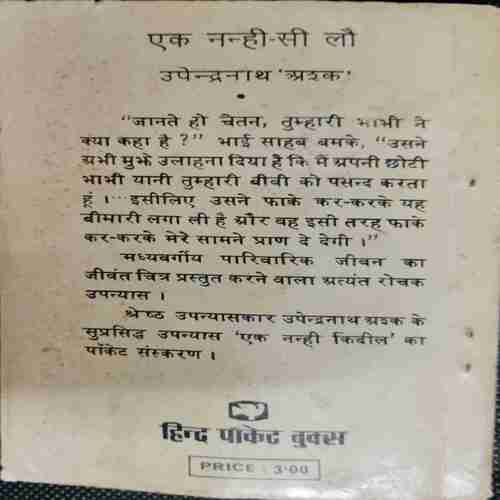 एक नन्ही-सी लौ
उपेन्द्रनाथ 'अश्क'
"जानते हो चेतन, तुम्हारी भाभी ने
क्या कहा है ?" भाई साहब बमके, "उसने
अभी मुझे उलाहना दिया है कि मैं अपनी छोटी
भाभी यानी तुम्हारी बीवी को पसन्द करता
हूं ।...इसीलिए उसने फाके कर-करके यह
बीमारी लगा ली है और वह इसी तरह फाके
कर-करके मेरे सामने प्राण दे देगी ।"
मध्यवर्गीय पारिवारिक जीवन का
जीवंत चित्र प्रस्तुत करने वाला अत्यंत रोचक
उपन्यास ।
श्रेष्ठ उपन्यासकार उपेन्द्रनाथ अश्क के
सुप्रसिद्ध उपन्यास 'एक नन्ही किंदील' का
पॉकेट संस्करण ।
हिन्द पॉकेट बुक्स
PRICE : 3·00